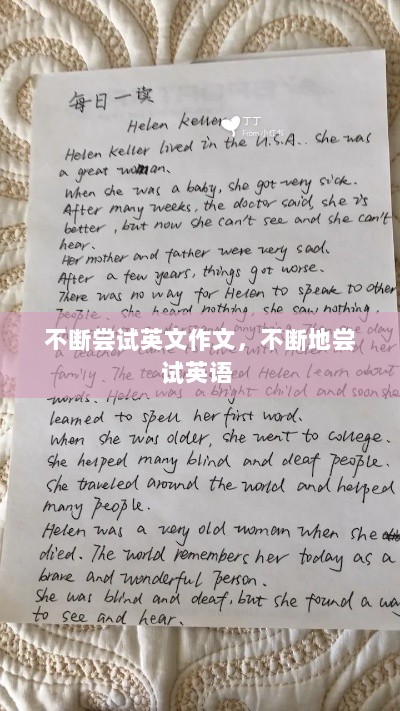 每日一读
丁丁
From 小红书
Helen Keller
Helen Keller lived in the U.S.A.. She was
a great woman.
When she was a baby, she got very sick.
After many weeks, the doctor said, she is
better, but now she can't see and she can't
hear.
Her mother and father were very sad.
After a few years, things got worse.
There was no way for Helen to speak to other
people. She heard nothing, she saw nothing.
day
不断尝试英文作文，不断地尝
试英语
a teacher her
family. The Helen learn about
words. Helen was a bright child and soon she
learned to spell her first word.
When she was older, she went to college.
She helped many blind and deaf people.
She traveled around the world and helped
many people.
Helen was a very old woman when she
died. The world remembers her today as a
brave and wonderful person.
She was blind and deaf, but she found a way
to see and hear.